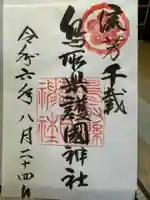 流芳千載
鳥取縣護國神社
令和六年八月二十四日